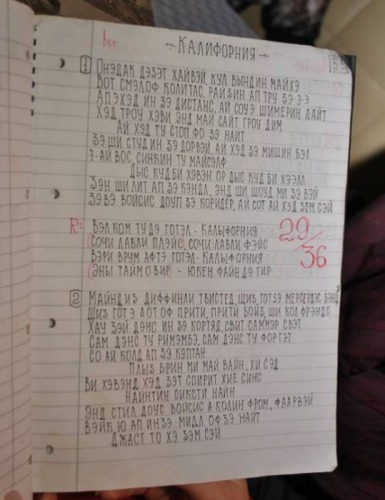 - КАЛИФОРНИЯ -
1 ОНЭДАК ДЭЗЭТ ХАЙВЭЙ КУЛ ВЫНДИН МАЙХЭ
ВОТ СМЭЛОФ КОЛИТАС, РАЙЗИН АП ТРУ ЗЭ-Э-Э
АПЭХЭД ИН ЗЭ ДИСТАНС, АЙ СОУЭ ШИМЕРИН ЛАЙТ
ХЭД ГРОУ ХЭВИ, ЭНД МАЙ САЙТ ГРОУ ДИМ
АЙ ХЭД ТУ СТОП ФО ЗЭ НАЙТ
ЗЭ ШИ СТУД ИН ЗЭ ДОРВЭЙ, АЙ ХЭД ЗЭ МИШИН БЭЛ
Э-АЙ ВОС, СИНКИН ТУ МАЙСЭЛФ
ДЫС КУД БИ ХЭВЭН ОР ДЫС КУД БИ ХЭЭЛ
ЗЭН ШИ ЛИТ АП ЭЭ КЭНДЛ, ЭНД ШИ ШОУД МИ ЗЭ ВЭЙ
ЗЭВЭ ВОЙСИС ДОУН ЗЭ КОРИДЕР, АЙ СОТ АЙ ХЭД ЗЕМ СЭЙ
R: ВЭЛКОМ ТУ ДЭ ГОТЭЛ - КАЛЫФОРНИЯ
(СОЧИ ЛАВЛИ ПЛЭЙС), СОЧИ ЛАВЛИ ФЭЙС
ВЭРИ ВРУМ АФТЭ ГОТЭЛ - КАЛЫФОРНИЯ
(ЭНЫ ТАЙМ О ВИР) - ЮКЕН ФАЙНДЭ ГИР
29
36
2 МАЙНД ИЗ ДИФФИНЛИ ТВИСТЕД, ШИЗ ГОТ ЗЭ МЕРСЕРДЭС БЭНЦ
ШИЗ ГОТ Э ЛОТ ОФ ПРИТИ, ПРИТИ БОЙЗ, ШИ КОЛ ФРЕНДС
ХАУ ЗЭЙ ДЭНС ИН ЗЭ КОРТЯД, СВИТ САММЕР СВЭТ
САМ ДЭНС ТУ РИМЭМБЭ, САМ ДЭНС ТУ ФОРГЭТ
СО АЙ КОЛД АП ЗЭ КЭПТАН
ПЛЫЗ БРИН МИ МАЙ ВАЙН, ХИ СЭД
ВИ ХЭВЭНД ХЭД ЗЭТ СПИРИТ ХИЕ СИНС
НАЙНТИН СИКСТИ НАЙН
ЭНД СТИЛ ДОУС ВОЙСИС А КОЛИН ФРОМ, ФААРВЭЙ
ВЭЙК Ю АП ИН ЗЭ МИДЛ ОФ ЗЭ НАЙТ
ДЖАСТ ТО ХЭ ЗЭМ СЭЙ